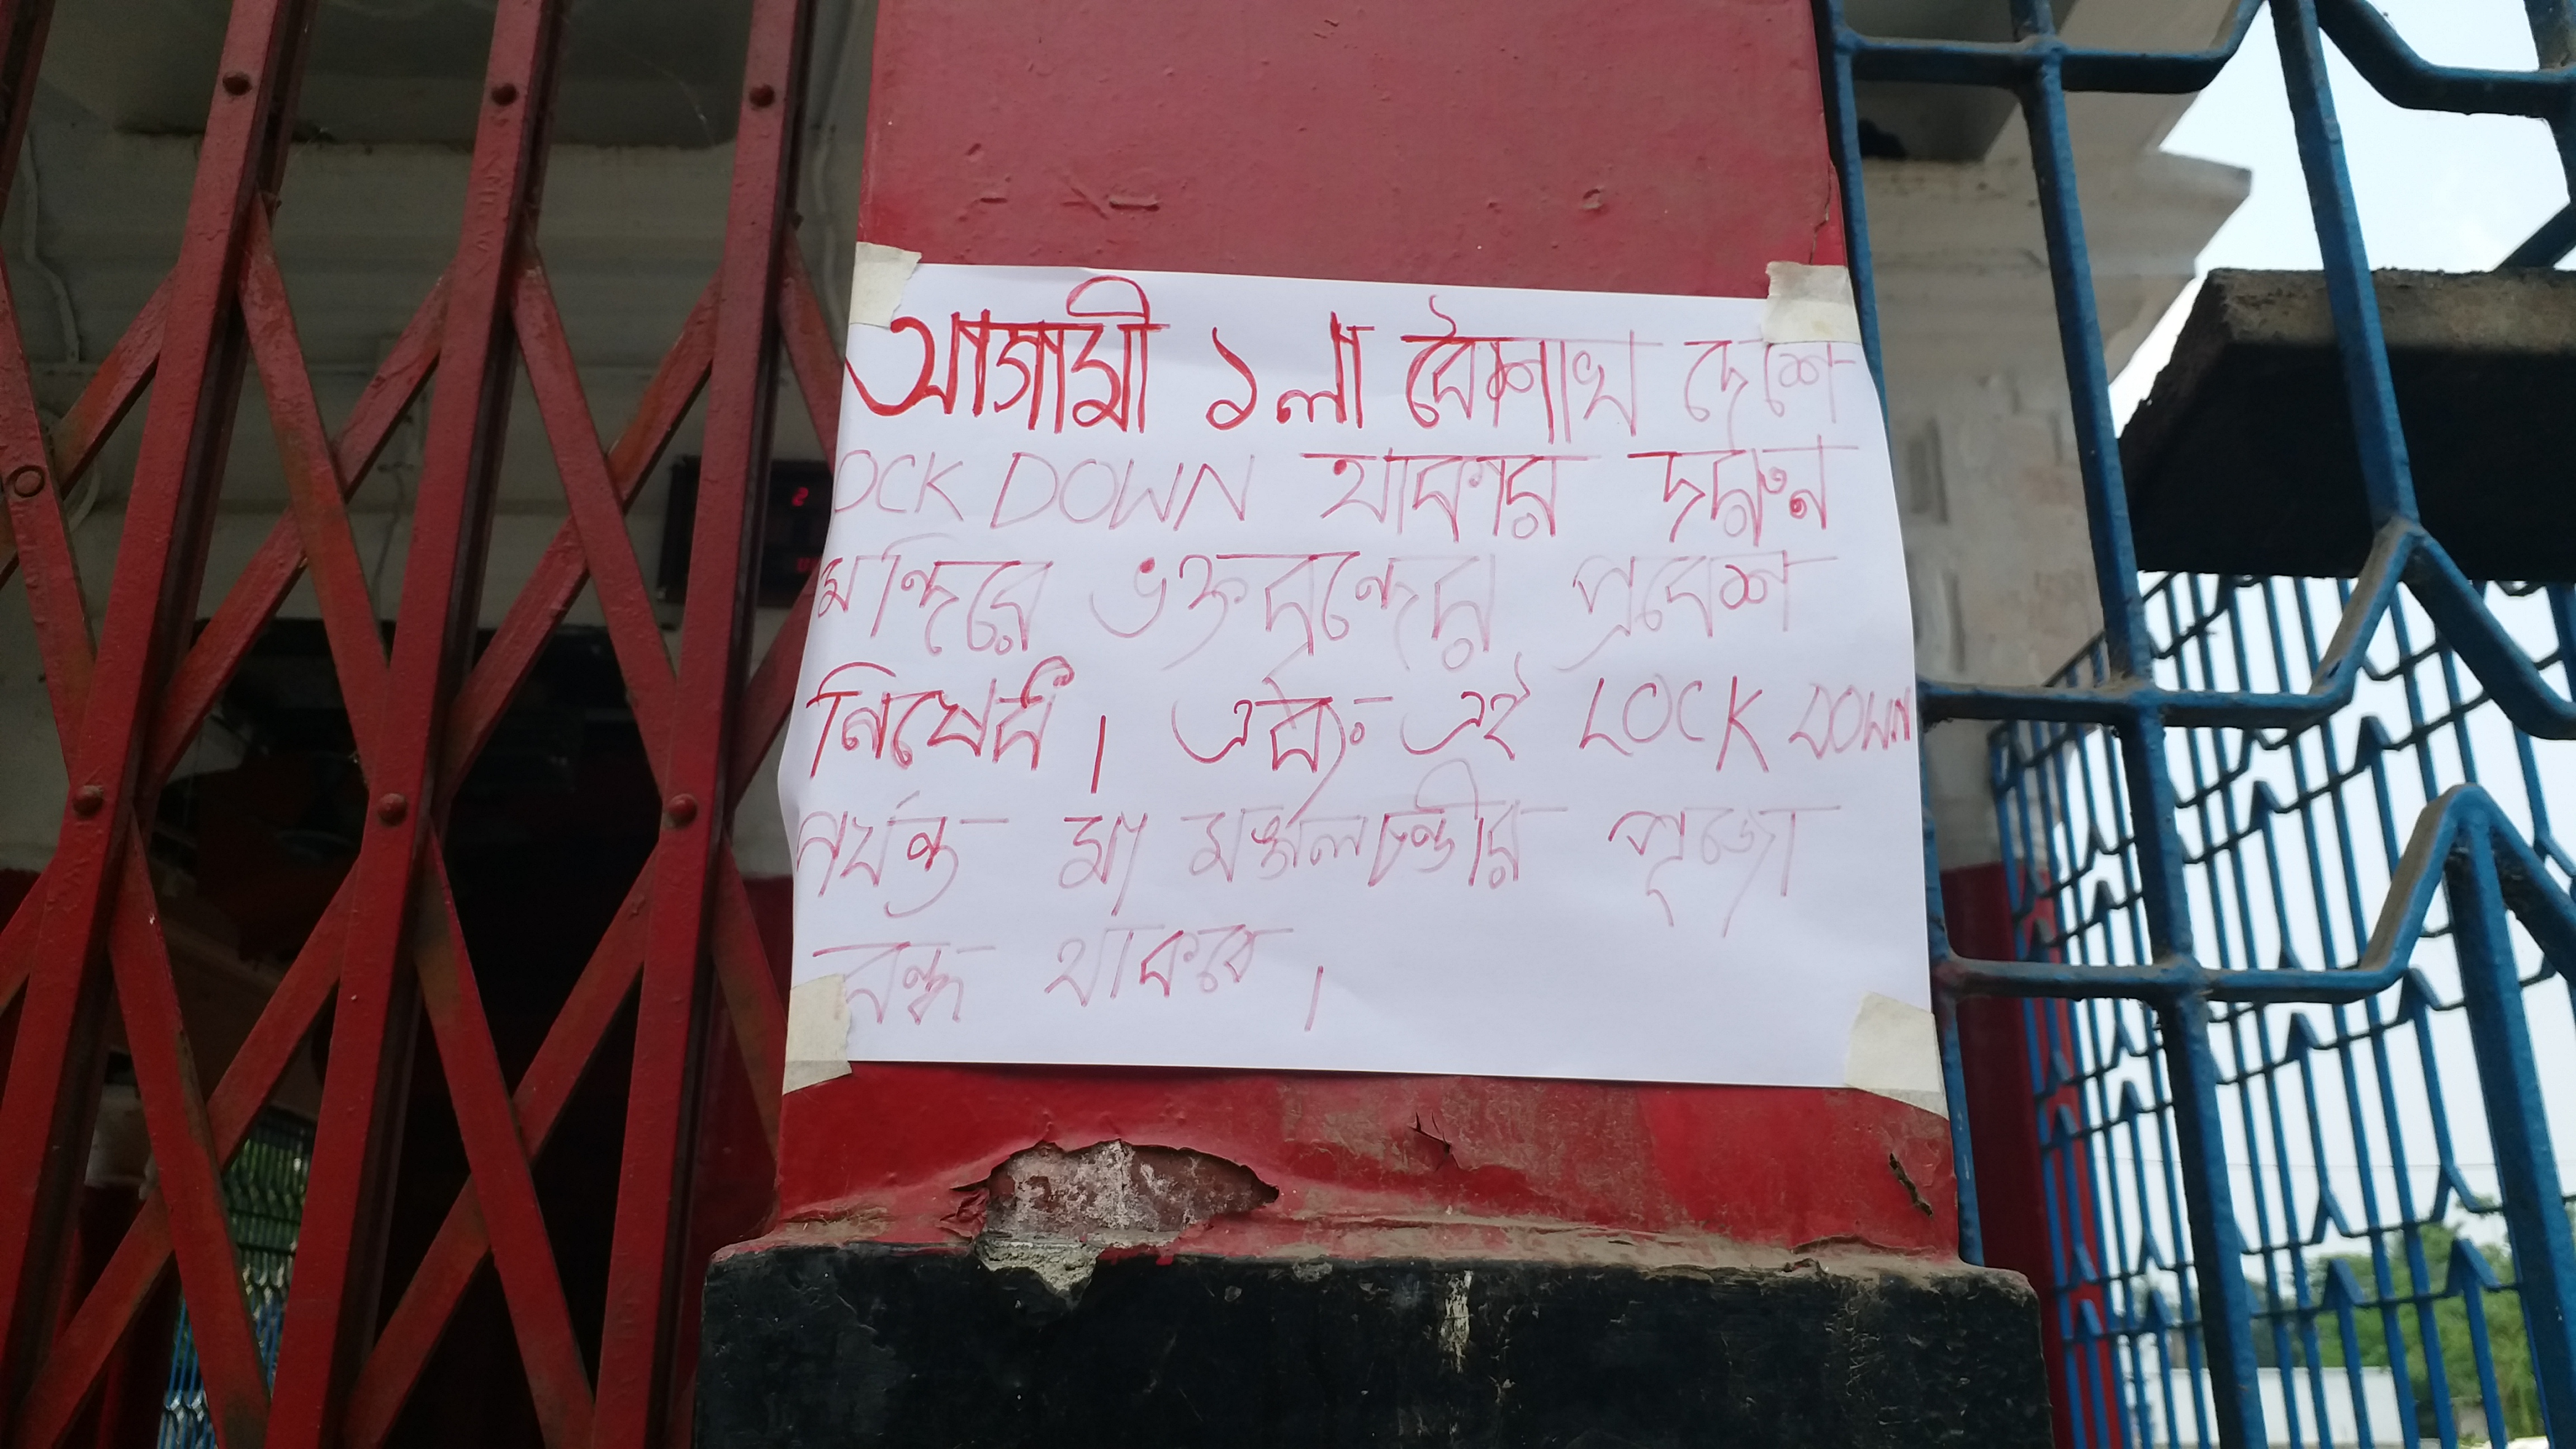 আগামী ১লা বৈশাখ দেশে
LOCK DOWN থাকার দরুন
মন্দিরে ভক্তবৃন্দের প্রবেশ
নিষেধ। এবং এই LOCK DOWN
পর্যন্ত মা মঙ্গলচণ্ডীর পূজো
বন্ধ থাকবে।